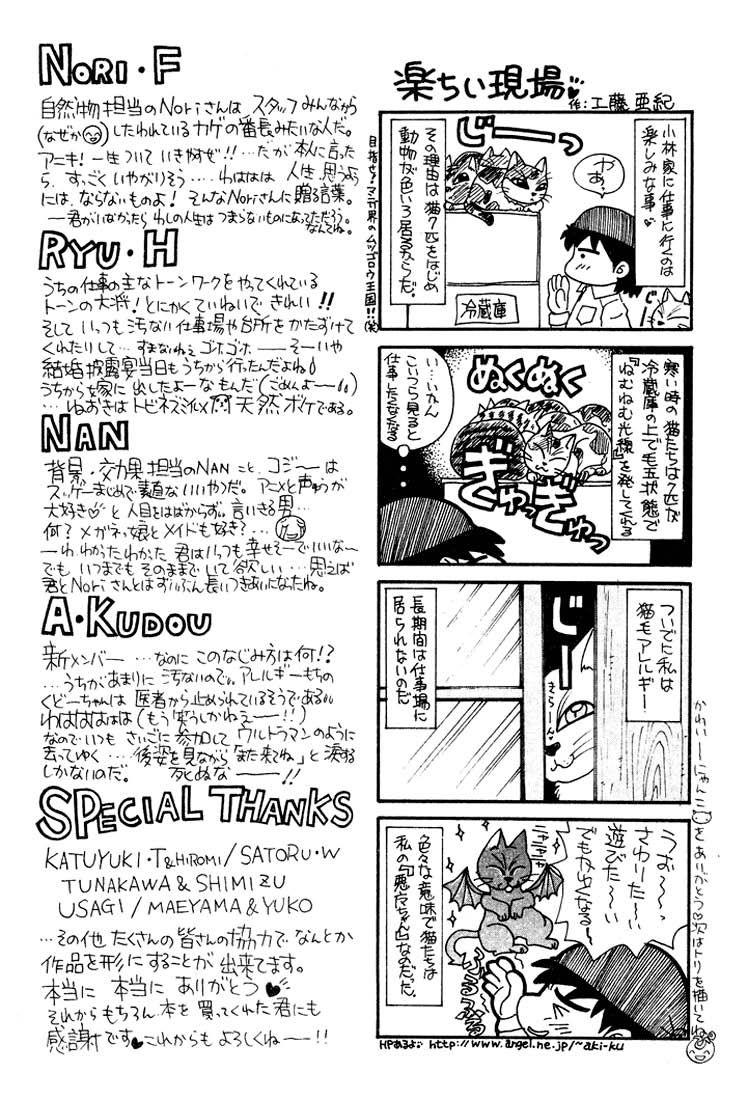 NORI・F
自然物担当のNoriさんは スタッフみんなから
(なぜか)したわれているカゲの番長みたいな人だ。
アニキ!一生ついていきやすぜ!!…だが本人に言った
ら、すっごくいやがりそう……わはははは 人生、思うよう
には、ならないものよ! そんなNoriさんに贈る言葉。
―君がいなかったら わしの人生は つまらないものになってただろう。
なんてね。
RYU・H
うちの仕事の主なトーンワークをやってくれている
トーンの大将!とにかくていねいで きれい!!
そして いっつも汚ない仕事場や台所をかたずけて
くれたりして…すまないねえゴホゴホ ―そーいや
結婚披露宴当日もうちから行ったんだよね
うちから嫁に出したよーなもんだ(ごめんよー)
…ねおきは トビネズミ 天然ボケである。
NAN
背景・効果担当のNANこと、コジーは
スッゲーまじめで素直ないいやつだ。アニメと声ゆうが
大好き♡と人目をはばからず。言いきる男…
何?メガネっ娘とメイドも好き?…
―わ、わかったわかった 君はいつも幸せそーでいいな~
でも いつまでも そのままでいて欲しい…思えば
君とNoriさんとはずいぶん長いつきあいになったね。
A・KUDOU
新メンバー…なのに このなじみ方は何!?
…うちがあまりに 汚ないので。アレルギーもちの
くどーちゃんは 医者から止められているそうである
わはははははは(もう笑うしかねえー!!)
なのでいつも さいごに参加して ウルトラマンのように
去ってゆく…後姿を見ながら「また来てね」と涙する
しかないのだ。 死ぬな―!!
SPECIAL THANKS
KATUYUKI・T & HIROMI / SATORU・W
TUNAKAWA & SHIMIZU
USAGI / MAEYAMA & YUKO
…その他 たくさんの皆さんの協力で なんとか
作品を形にすることが 出来てます。
本当に 本当に ありがとう♥
それから もちろん 本を買ってくれた君にも
感謝です♥これからも よろしくねー!!
楽ちい現場♥
作:工藤亜紀
小林家に仕事に行くのは
楽しみな事♥
やあっ
じーっ
その理由は猫7匹をはじめ
動物が色々居るからだ。
冷蔵庫
じーっ
目指せ!マンガ界のムツゴロウ王国!!(笑)
寒い時の猫たちは7匹が
冷蔵庫の上で毛玉状態で
『ねむねむ光線』を発してくれる
ぬくぬく
ぎゅっぎゅっ
い…いかん
こいつら見ると
仕事したくなくなる
ついでに私は
猫毛アレルギー
じーっ
きらーん
長期間は仕事場に
居られないのだ
うおぉ~っ
さわりた~い
遊びた~い
でもかゆくなる~
色々な意味で猫たちは
私の『悪魔ちゃん』なのだ。
かわいーにゃんこをありがとう♡次はトリを描いてね
HPあるよ http://www.angel.ne.jp/~aki-ku